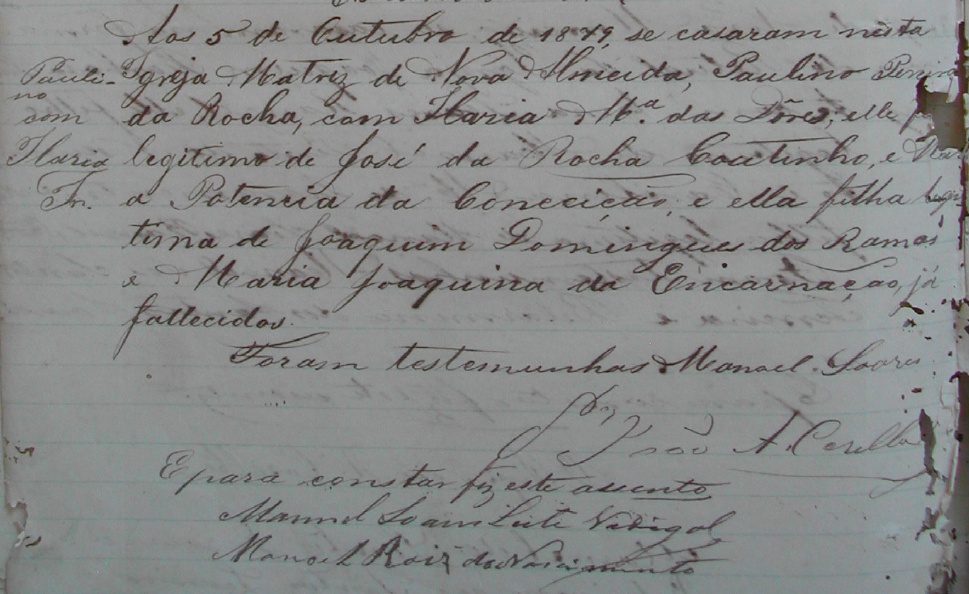 Aos 5 de Outubro de 1879, se casaram nesta
Pauli-
no
com
Ilaria
Fr.
Igreja Matriz de Nova Almeida, Paulino Pereira
da Rocha, com Ilaria Mª. das Dôres; elle f
legitimo de José da Rocha Coutinho, e Ma-
a Potencia da Conceição, e ella filha legi
tima de Joaquim Domingues dos Ramos
e Maria Joaquina da Encarnação, já
fallecidos.
Foram testemunhas Manoel Soares
João A.
E para constar fiz este assento
Manoel Soares Leite Vidigal
Manoel Roiz do Nascimento